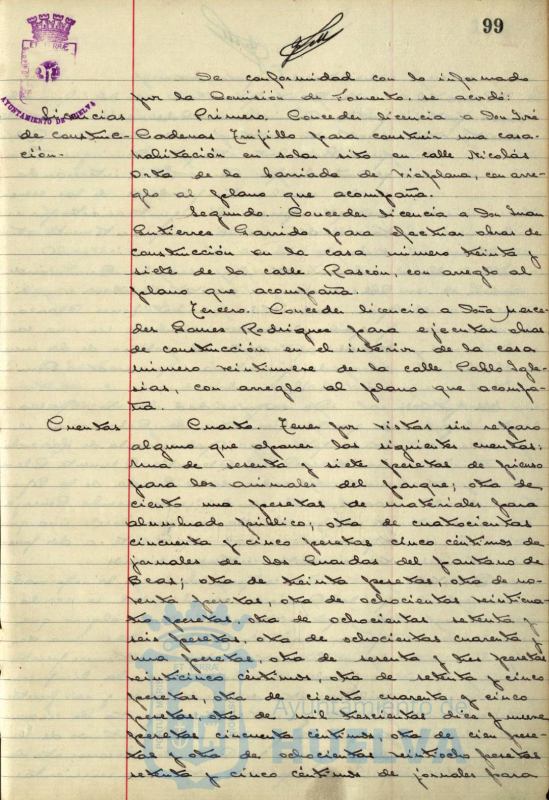 99
AYUNTAMIENTO DE HUELVA
De conformidad con lo informado
por la Comisión de Fomento, se acordó:
Licencias
de construc-
ción.
Primero. Conceder licencia a Don José
Cadenas Trujillo para construir una casa-
habitación en solar sito en calle Nicolás
Orta de la barriada de Viaplana, con arre-
glo al plano que acompaña.
Segundo. Conceder licencia a Don Juan
Gutierrez Garrido para efectuar obras de
construcción en la casa número treinta y
siete de la calle Rascón, con arreglo al
plano que acompaña.
Tercero. Conceder licencia a Doña Merce-
des Gomez Rodriguez para ejecutar obras
de construcción en el interior de la casa
número veintinueve de la calle Pablo Igle-
sias, con arreglo al plano que acompa-
ña.
Cuentas
Cuarto. Tener por vistas sin reparo
alguno que oponer las siguientes cuentas:
una de sesenta y siete pesetas de pienso
para los animales del parque; otra de
ciento una pesetas de materiales para
alumbrado público; otra de cuatrocientas
cincuenta y cinco pesetas cinco céntimos de
jornales de los Guardas del pantano de
Beas; otra de treinta pesetas, otra de no-
venta pesetas, otra de ochocientas veinticua-
tro pesetas, otra de ochocientas setenta y
seis pesetas, otra de ochocientas cuarenta y
una pesetas, otra de sesenta y tres pesetas
veinticinco céntimos, otra de setenta y cinco
pesetas, otra de ciento cuarenta y cinco
pesetas otra de mil trescientas diez y nueve
pesetas cincuenta céntimos, otra de cien pese-
tas y otra de ochocientas veintiocho pesetas
setenta y cinco céntimos de jornales para
Ayuntamiento de
HUELVA